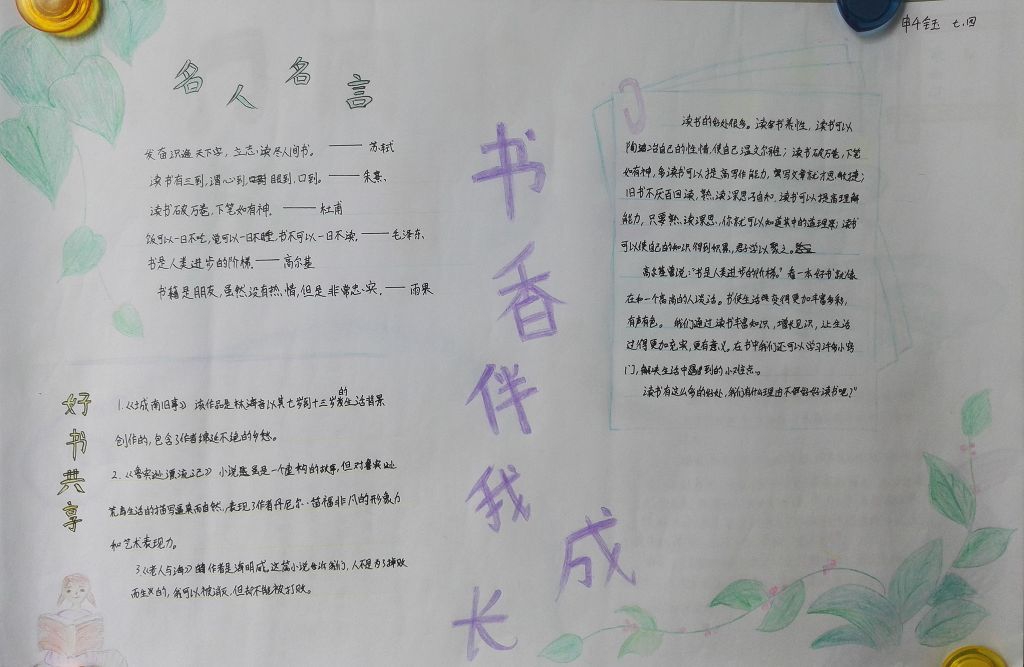 申千钰 七.四
名人名言
发奋识遍天下字，立志读尽人间书。 —— 苏轼
读书有三到，谓心到，眼到，口到。—— 朱熹、
读书破万卷，下笔如有神. —— 杜甫
饭可以一日不吃，觉可以一日不睡，书不可以一日不读. —— 毛泽东、
书是人类进步的阶梯. —— 高尔基
书籍是朋友，虽然没有热情，但是非常忠实. —— 雨果
好书共享
1.《城南旧事》 该作品是林海音以其七岁到十三岁的生活背景
创作的，包含了作者绵延不绝的乡愁。
2.《鲁宾逊漂流记》 小说虽是一个虚构的故事，但对鲁宾逊
荒岛生活的描写逼真而自然，表现了作者丹尼尔·笛福非凡的形象力
和艺术表现力。
3.《老人与海》 作者是海明威，这篇小说告诉我们，人不是为了掉败
而生的，我可以被消灭，但却不能被打败。
书香伴我成长
读书的好处很多。读书养性，读书可以
陶冶自己的性情，使自己温文尔雅；读书破万卷，下笔
如有神，多读书可以提高写作能力，写文章就才思敏捷；
旧书不厌百回读，熟读深思子自知，读书可以提高理解
能力，只要熟读深思，你就可以知道其中的道理来；读书
可以使自己的知识得到积累，君子学以聚之。
高尔基曾说："书是人类进步的阶梯。"看一本好书就像
在和一个高尚的人谈话。书使生活变得更加丰富多彩，
有声有色。我们通过读书丰富知识，增长见识，让生活
过得更加充实，更有意义。在书中我们还可以学习许多小窍
门，解决生活中遇到的小难点。
读书有这么多的好处，我们有什么理由不好好读书呢？"